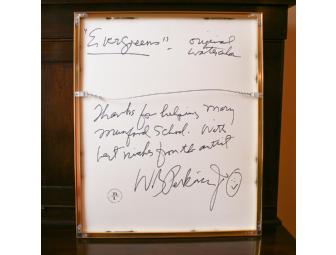 "Evergreens" - original
watercolor
Thanks for helping Mary
Munford School. With
best wishes from the artist
WB Perkins Jr